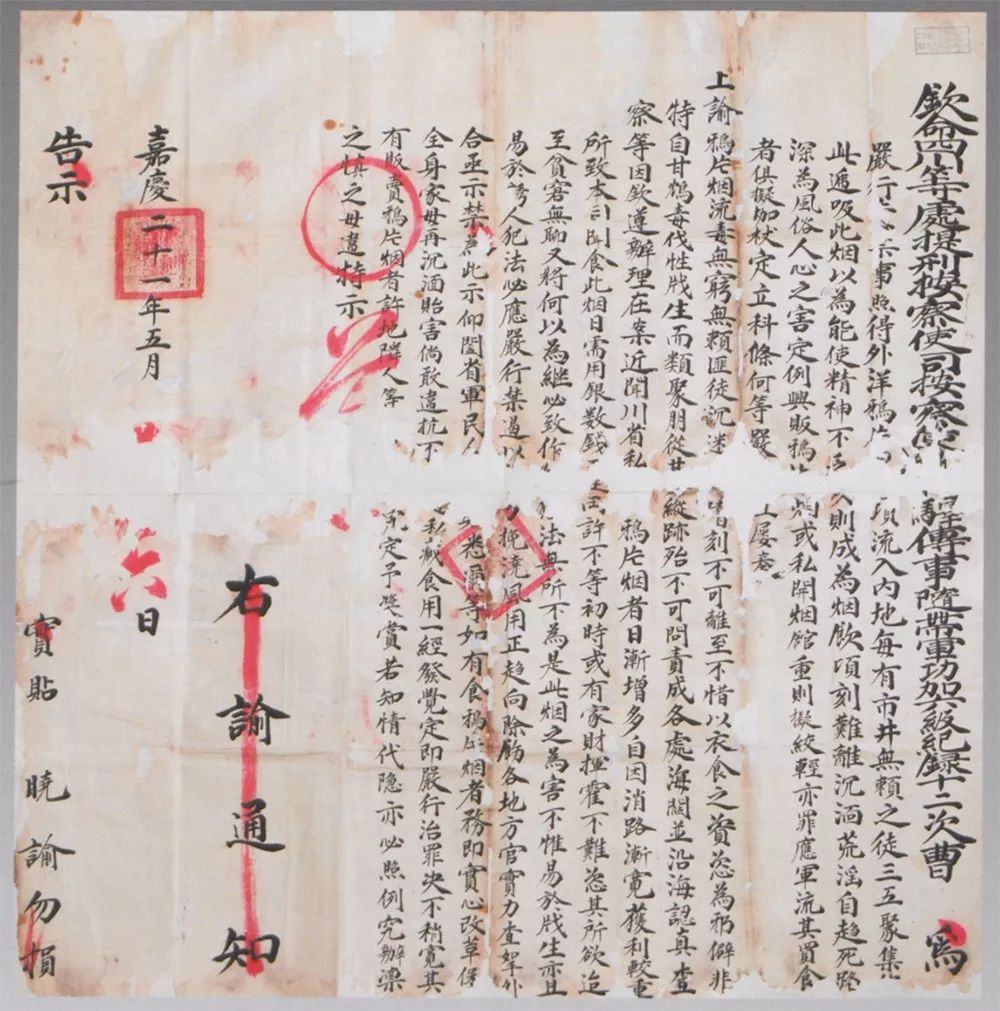 欽命四川等處提刑按察使司按察 驛傳事隨帶軍功加級紀錄十二次曹 爲
嚴行 示事照得外洋鴉片 流入內地每有市井無賴之徒三五聚集
此遞吸此烟以為能使精神不 則成為烟飲項刻難離沉湎荒淫自趋死路
深為風俗人心之害定例興販鴉 烟或私開烟館重則擬絞輕亦罪應軍流其買食
者俱擬枷杖定立科條何等嚴 屢奉
上諭鴉片烟流毒無窮無賴匪徒沉迷 刻不可離至不惜以衣食之資恣為邪僻非
特自甘鴆毒伐性戕生而類聚朋從其 縱跡殆不可問責成各處海關並沿海認真查
察等因欽遵辦理在案近聞川省私 鴉片烟者日漸增多自因消路漸寬獲利較重
所致本司聞食此烟日需用銀数錢 許不等初時或有家財揮霍不難恣其所欲迨
至貧窘無聊又將何以為繼必致作 法無所不為是此烟之為害不惟易於戕生亦且
易於誘人犯法必應嚴行禁遏以 挽澆風用正趋向除飭各地方官實力查拏外
合亟示禁為此示仰闔省軍民人 悉 等如有食鴉片烟者務即實心改革保
全身家毋再沉湎貽害倘敢違抗不 私 食用一經發覺定即嚴行治罪決不稍寬其
有販賣鴉片烟者許地隣人等 定予獎賞若知情代隱亦必照例究辦凛
之慎之毋違特示
右諭通知
嘉慶二十一年五月 六日
告示
實貼 曉諭勿損